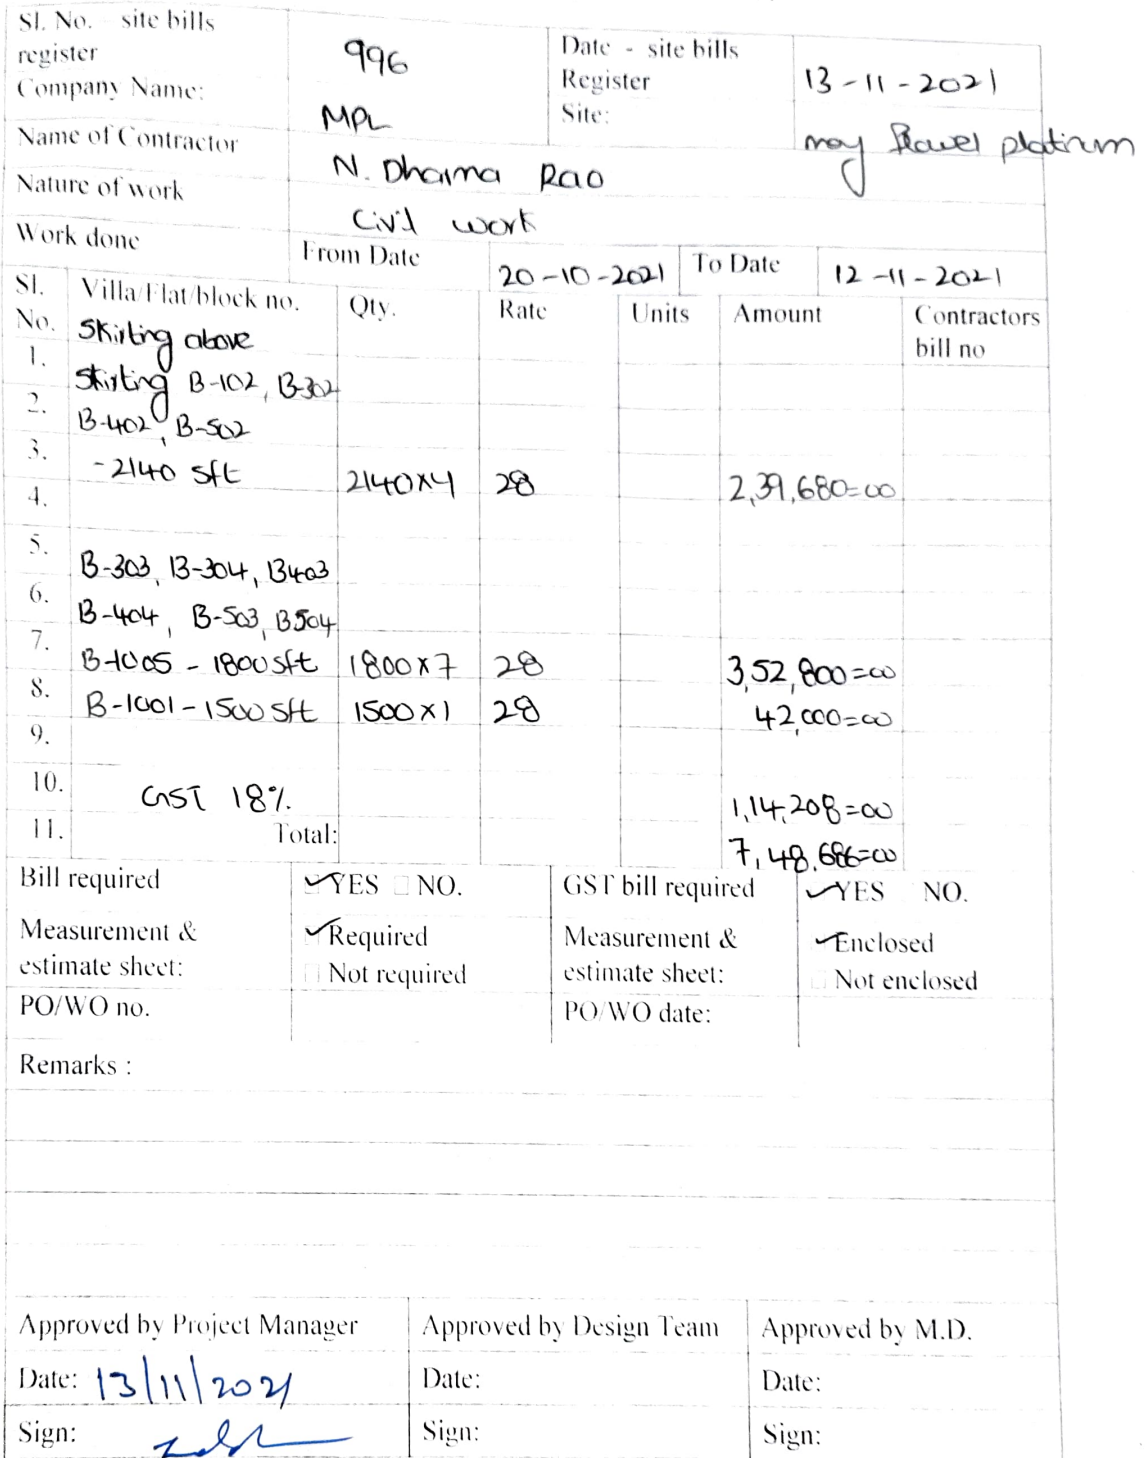 Sl. No. - site bills register 996 Date - site bills Register 13-11-2021
Company Name: MPL Site: may flower platinum
Name of Contractor N. Dharma Rao
Nature of work Civil work
Work done From Date 20-10-2021 To Date 12-11-2021
Sl. No. Villa/Flat/block no. Qty. Rate Units Amount Contractors bill no
Skirting above
1. Skirting B-102, B-302
2. B-402, B-502
3. -2140 sft 2140x4 28 2,39,680=00
4.
5. B-303, B-304, B403
6. B-404, B-503, B504
7. B-1005 - 1800 sft 1800x7 28 3,52,800=00
8. B-1001 - 1500 sft 1500x1 28 42,000=00
9.
10. GST 18% 1,14,208=00
11. Total: 7,48,686=00
Bill required YES NO. GST bill required YES NO.
Measurement & estimate sheet: Required Not required Measurement & estimate sheet: Enclosed Not enclosed
PO/WO no. PO/WO date:
Remarks :
Approved by Project Manager Approved by Design Team Approved by M.D.
Date: 13/11/2021 Date: Date:
Sign: Sign: Sign: